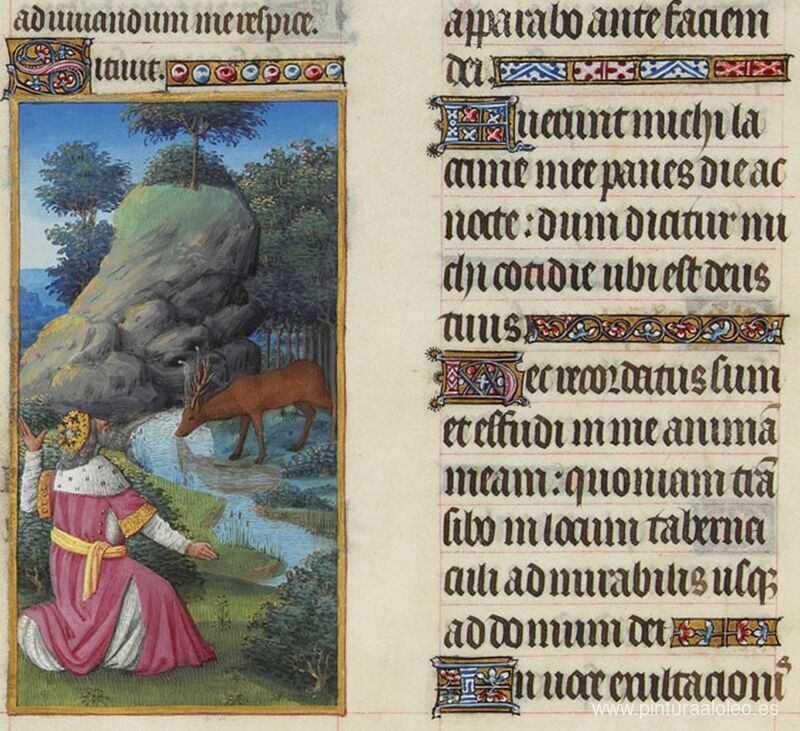 adiuuandum me respice.
Sitiuit.
apparabo ante faciem
dei.
Fuerunt michi la
crime mee panes die ac
nocte : dum dicitur mi
chi cotidie ubi est deus
tuus.
Hec recordatus sum
et effudi in me animā
meam : quoniam trā
sibo in locum taberna
culi admirabilis usqꝫ
ad domum dei
In uoce exultacionis
www.pinturaaloleo.es